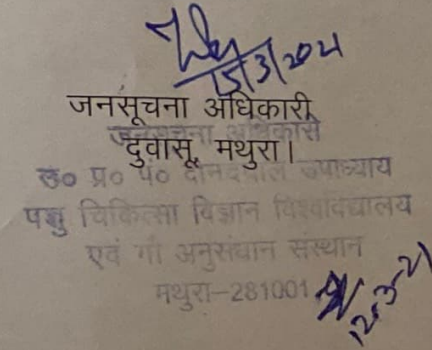 15/3/2021
जनसूचना अधिकारी
जनसूचना अधिकारी
दुवासू, मथुरा।
उ० प्र० पं० दीनदयाल उपाध्याय
पशु चिकित्सा विज्ञान विश्वविद्यालय
एवं गौ अनुसंधान संस्थान
मथुरा-281001